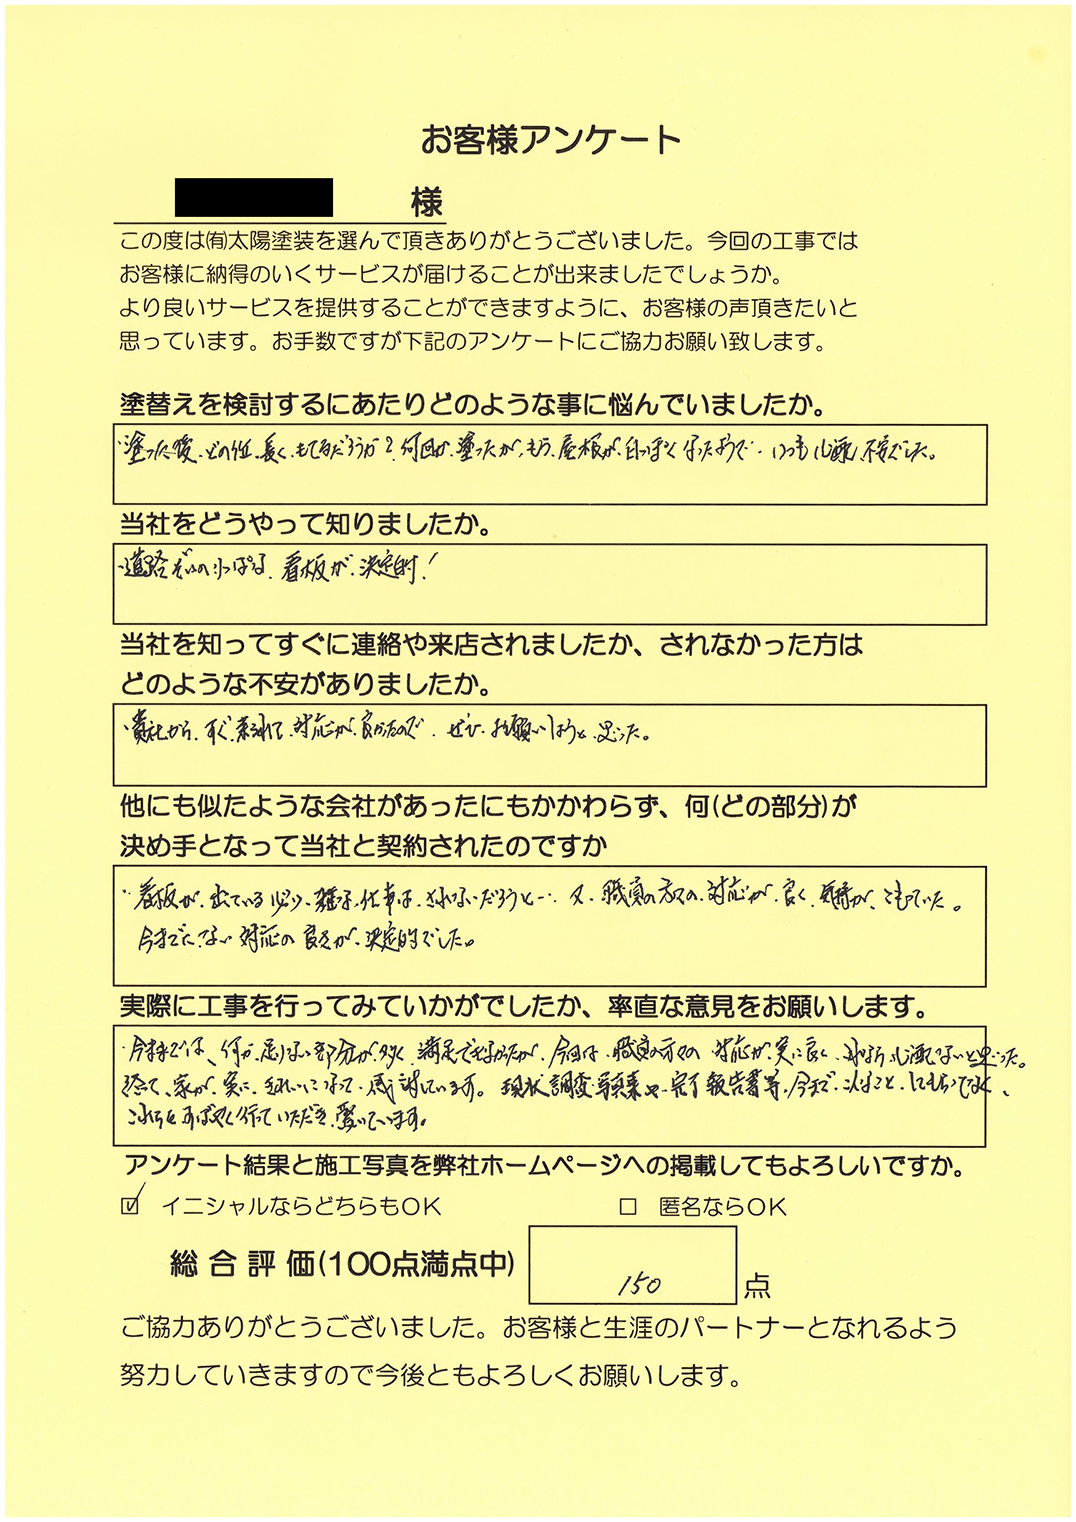 お客様アンケート
様
この度は㈲太陽塗装を選んで頂きありがとうございました。今回の工事では
お客様に納得のいくサービスが届けることが出来ましたでしょうか。
より良いサービスを提供することができますように、お客様の声頂きたいと
思っています。お手数ですが下記のアンケートにご協力お願い致します。
塗替えを検討するにあたりどのような事に悩んでいましたか。
・塗った後、どの位、長く、もてるだろうか?何回か、塗ったが、もう、屋根が、白っぽくなったようで、いつも心配、不安でした。
当社をどうやって知りましたか。
・道路ぞいのりっぱな、看板が、決定的!
当社を知ってすぐに連絡や来店されましたか、されなかった方は
どのような不安がありましたか。
・貴社から、すぐ、来られて、対応が、良かったので、ぜひ、お願いしようと、思った。
他にも似たような会社があったにもかかわらず、何(どの部分)が
決め手となって当社と契約されたのですか
・看板が、出ている以上、雑な、仕事は、されないだろうと… 又、職員の方々の、対応が、良く、気持が、こもっていた。
今までにない対応の良さが、決定的でした。
実際に工事を行ってみていかがでしたか、率直な意見をお願いします。
・今までは、何か、足りない部分が、多く、満足できなかったが、今回は、職員の方々の対応が、実に良く、心配ないと思った。
家が、実に、きれいになって、感謝しています。現状調査写真集や、完了報告書等、今まで、こんなこと、してもらってなく、
これらをすばやく行っていただき、驚いています。
アンケート結果と施工写真を弊社ホームページへの掲載してもよろしいですか。
☑ イニシャルならどちらもOK □ 匿名ならOK
総合評価(100点満点中) 150 点
ご協力ありがとうございました。お客様と生涯のパートナーとなれるよう
努力していきますので今後ともよろしくお願いします。